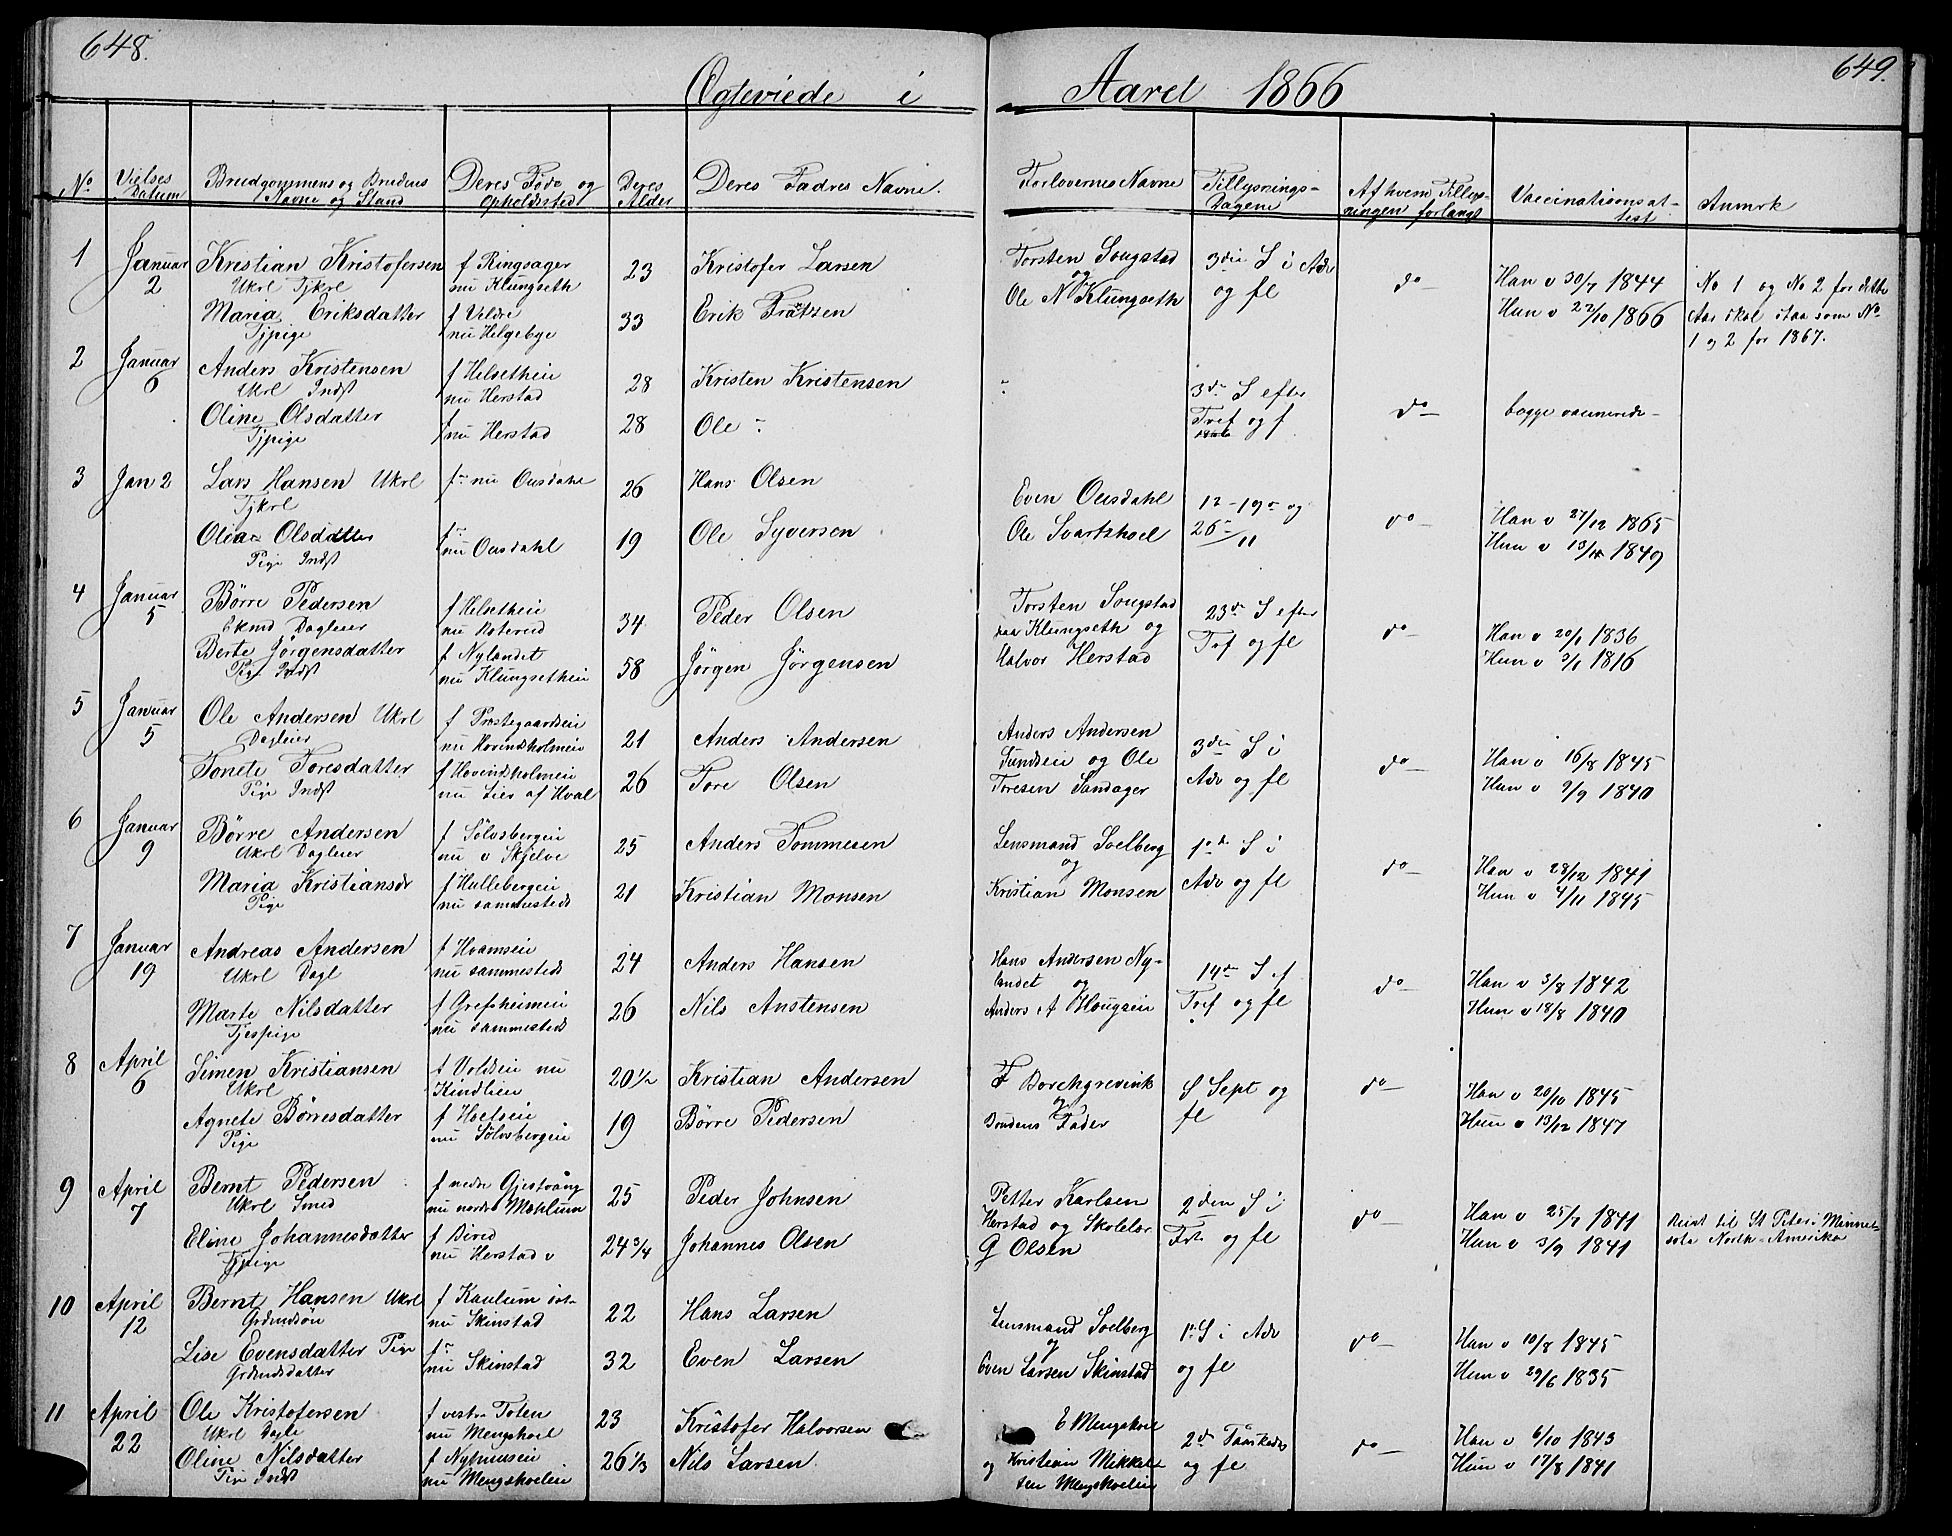 648.
649.
Ægteviede i Aaret 1866
No
Vielses Datum
Brudgommens og Brudens Navne og Stand
Deres Føde og Opholdssted
Deres Alder
Deres Fædres Navne.
Forlovernes Navne
Tillysnings-Dagene
Af hvem Tillysningen forlangt
Vaccinationsattest
Anmrk
1 Januar 2
Kristian Kristofersen
Ukrl Tjkrl
f Ringsager
nu Klungseth
23
Kristofer Larsen
Torsten Sougstad
og
Ole N Klungseth
3die S i Adv
og fl
do
Han v 30/7 1844
Hun v 22/10 1866
No 1 og No 2 for dette
Aar skal staa som No
1 og 2 for 1867.
Maria Eriksdatter
Tjpige
f Veldre
nu Helgebye
33
Erik
2 Januar 6
Anders Kristensen
Ukrl Indst
f Helsetheie
nu Herstad
28
Kristen Kristensen
3de S efter
Tref og f
do
begge vaccinerede
Oline Olsdatter
Tjpige
f
nu Herstad
28
Ole
3 Jan 2
Lars Hansen Ukrl
Tjkrl
f nu Ousdahl
26
Hans Olsen
Even Ousdahl
Ole Svartshoel
12 - 19 og
26/11
do
Han v 27/12 1865
Hun v 1849
Olia Olsdatter
Pige Indst
f
nu Ousdahl
19
Ole Syversen
4 Januar 5
Börre Pedersen
Ekmd Dagleier
f Helsetheie
nu Roterud
34
Peder Olsen
Torsten Sougstad
paa Klungseth og
Halvor Herstad
23de S efter
Tref og fl
do
Han v 20/1 1836
Hun v 3/1 1816
Berte Jörgensdatter
Pige Indst
f Nylandet
nu Klungsetheie
58
Jörgen Jörgensen
5 Januar 5
Ole Andersen Ukrl
Dagleier
f Prestegaardseie
nu Hovindsholmeie
21
Anders Andersen
Anders Andersen
Sundseie og Ole
Toresen Sandager
3die S i
Adv og fl
do
Han v 16/8 1845
Hun v 9/9 1840
Tonete Toresdatter
Pige Indst
f Hovindsholmeie
nu Lier af Hval
26
Tore Olsen
6 Januar 9
Börre Andersen
Ukrl Dagleier
f Sölvsbergeie
nu v Skjelve
25
Anders Tommesen
Lensmand Soelberg
og
Kristian Monsen
1ste S i
Adv og fl
do
Han v 28/12 1841
Hun v 4/11 1845
Maria Kristiansdr
Pige
f Hullebergeie
nu sammesteds
21
Kristian Monsen
7 Januar 19
Andreas Andersen
Ukrl Dagl
f Hvamseie
nu sammesteds
24
Anders Hansen
Hans Andersen Ny-
landet og
Anders A Hougseie
14de S ef
Tref og fl
do
Han v 3/8 1842
Hun v 18/8 1840
Marte Nilsdatter
Tjespige
f Grefsheimeie
nu sammesteds
26
Nils Anstensen
8 April 6
Simen Kristiansen
Ukrl
f Voldseie nu
Kindlien
20 1/2
Kristian Andersen
F Borchgrevink
og
Brudens Fader
S Sept og
fl
do
Han v 20/10 1845
Hun v 13/12 1847
Agnete Börresdatter
Pige
f Hoelseie
nu Sölvsbergeie
19
Börre Pedersen
9 April 7
Bernt Pedersen
Ukrl Smed
f nedre Gjestvang
nu nordre Mæhlum
25
Peder Johnsen
Petter Karlsen
Herstad og Skolelær
G Olsen
2den S i
og fl
do
Han v 25/7 1841
Hun v 3/9 1841
Reist til St Peter i Minne-
sota North-Amerika
Eline Johannesdatter
Tjpige
f Birid
nu Herstad v
24 3/4
Johannes Olsen
10 April 12
Bernt Hansen Ukrl
Grdmdsön
f Kaulum östr
nu Skinstad
22
Hans Larsen
Lensmand Soelberg
og
Even Larsen Skinstad
1ste S i Adv
og fl
do
Han v 10/8 1845
Hun v 29/6 1835
Lise Evensdatter Pige
Grdmdsdatter
f
nu Skinstad
32
Even Larsen
11 April 22
Ole Kristofersen
Ukrl Dagle
f vestre Toten
nu Mengshoel
23
Kristofer Halvorsen
E Mengshoel
og Kristian Mikkel-
sen Mengshoeleie
2de Paaskedag
og fl
do
Han v 6/10 1843
Hun v 17/8 1841
Oline Nilsdatter
Pige Indst
f Nyhuuseie
nu Mengshoeleie
26 1/3
Nils Larsen